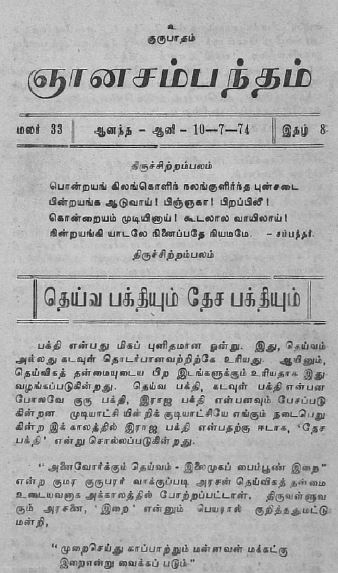 உ
குருபாதம்
ஞானசம்பந்தம்
மலர் 33 ஆனந்த - ஆனி - 10-7-74 இதழ் 8
திருச்சிற்றம்பலம்
பொன்றயங் கிலங்கொளிர் நலங்குளிர்ந்த புன்சடை
பின்றயங்க ஆடுவாய்! பிஞ்ஞகா! பிறப்பிலீ!
கொன்றையம் முடியினாய்! கூடலால வாயிலாய்!
நின்றயங்கி யாடலே நினைப்பதே நியமமே. - சம்பந்தர்.
திருச்சிற்றம்பலம்
தெய்வ பக்தியும் தேச பக்தியும்
பக்தி என்பது மிகப் புனிதமான ஒன்று. இது, தெய்வம்
அல்லது கடவுள் தொடர்பானவற்றிற்கே உரியது. ஆயினும்,
தெய்விகத் தன்மையுடைய பிற இடங்களுக்கும் உரியதாக இது
வழங்கப்படுகின்றது. தெய்வ பக்தி, கடவுள் பக்தி என்பன
போலவே குரு பக்தி, இராஜ பக்தி என்பனவும் பேசப்படு
கின்றன. முடியாட்சி யின்றிக் குடியாட்சியே எங்கும் நடைபெறு
கின்ற இக் காலத்தில் இராஜ பக்தி என்பதற்கு ஈடாக, ‘தேச
பக்தி’ என்று சொல்லப்படுகின்றது.
“ அனைவோர்க்கும் தெய்வம் - இலைமுகப் பைம்பூண் இறை”
என்ற குமர குருபரர் வாக்குப்படி அரசன் தெய்விகத் தன்மை
உடையவனாக அக்காலத்தில் போற்றப்பட்டான். திருவள்ளுவ
ரும் அரசனை, ‘இறை’ என்னும் பெயரால் குறித்ததுமட்டு
மன்றி,
“ முறைசெய்து காப்பாற்றும் மன்னவன் மக்கட்கு
இறைஎன்று வைக்கப் படும்”